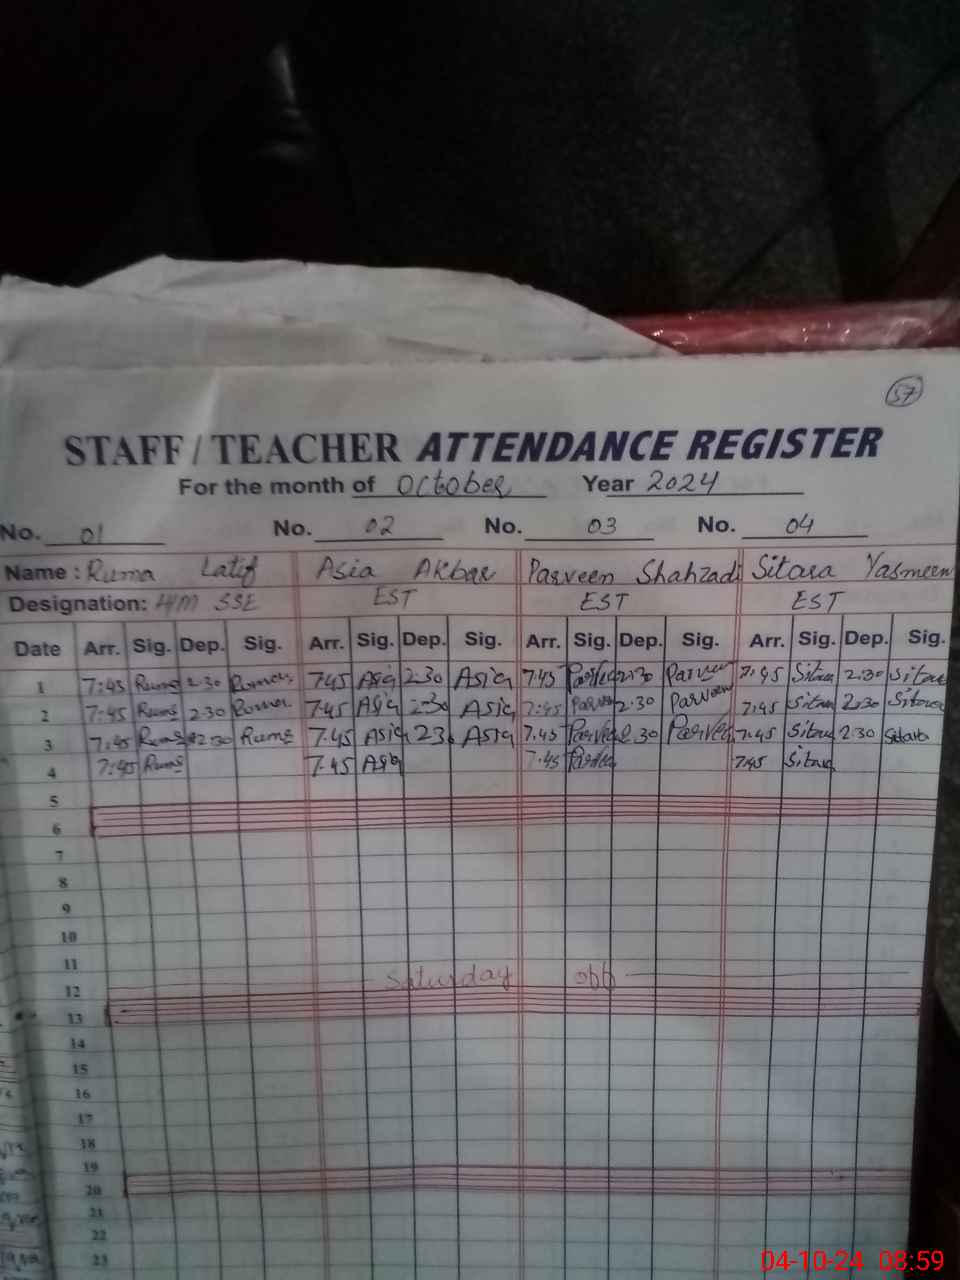 57
STAFF / TEACHER ATTENDANCE REGISTER
For the month of October Year 2024
No. 01 No. 02 No. 03 No. 04
Name : Ruma Latif Asia Akbar Parveen Shahzadi Sitara Yasmeen
Designation: H/M SSE EST EST EST
Date Arr. Sig. Dep. Sig. Arr. Sig. Dep. Sig. Arr. Sig. Dep. Sig. Arr. Sig. Dep. Sig.
1 7:45 Ruma 2:30 7:45 Asia 2:30 Asia 7:45 2:30 Parveen 7:45 Sitara 2:30 Sitara
2 7:45 Ruma 2:30 7:45 Asia 2:30 Asia 7:45 Parveen 2:30 Parveen 7:45 Sitara 2:30 Sitara
3 7:45 Ruma 2:30 Ruma 7.45 Asia 2.3 Asia 7.45 Parveen 2.30 Parveen 7:45 Sitara 2:30
4 7:45 Ruma 7.45 Asia 7:45 7:45 Sitara
5
6
7
8
9
10
11
Saturday off
12
13
14
15
16
17
18
19
20
21
22
23
04-10-24 08:59